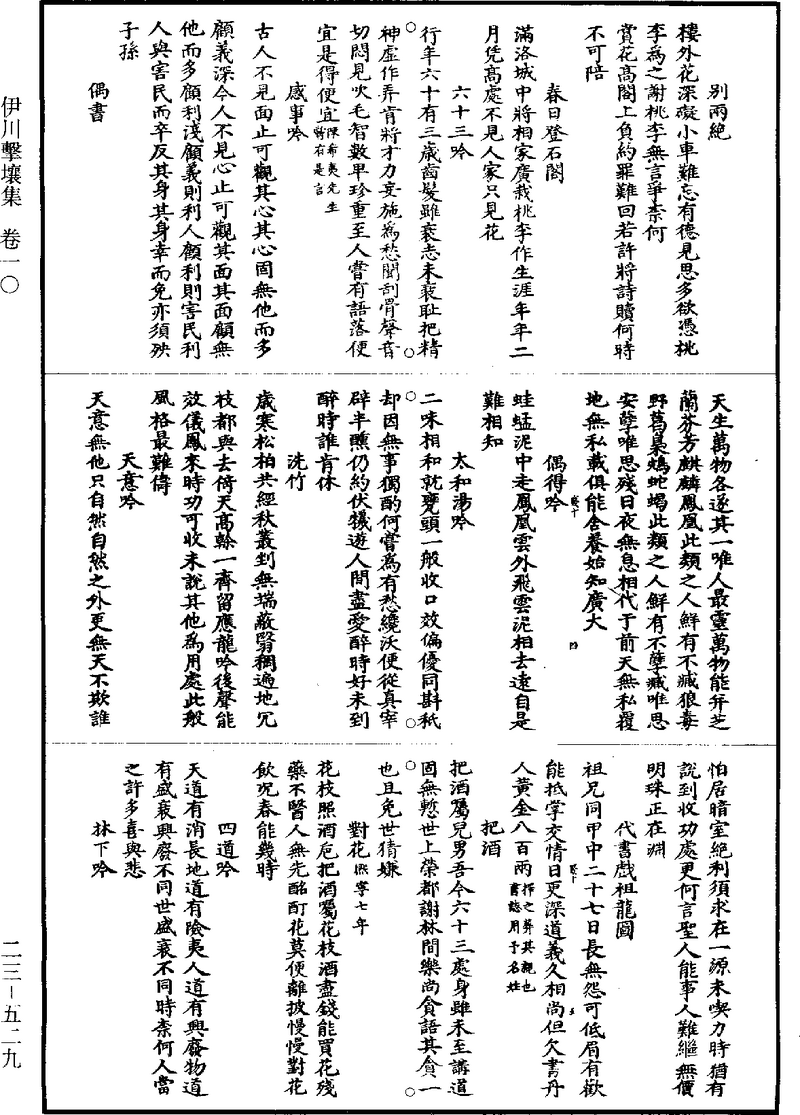 別兩絶
樓外花深礙小車難忘有德見思多欲憑桃
李為之謝桃李無言爭柰何
賞花高閣上負約罪難回若許將詩贖何時
不可陪
春日登石閣
滿洛城中將相家廣栽桃李作生涯年年二
月凭高處不見人家只見花
六十三吟
行年六十有三歲齒髮雖衰志未衰恥把精
神虛作弄肯將才力妄施為愁聞刮骨聲音
切悶見吹毛智數卑珍重至人嘗有語落便
宜是得便宜陳希夷先生
嘗有是言
感事吟
古人不見面止可觀其心其心固無他而多
顧義深今人不見心止可觀其面其面顧無
他而多顧利淺顧義則利人顧利則害民利
人與害民而卒反其身其身幸而免亦須殃
子孫
偶書
天生萬物各遂其一唯人最靈萬物能并芝
蘭芬芳麒麟鳳凰此類之人鮮有不臧狼毒
野葛梟鴆蛇蝎此類之人鮮有不孽臧唯思
安孽唯思殘日夜無息相代于前天無私覆
地無私載俱能含養始知廣大
偶得吟
蛙蜢泥中走鳳凰雲外飛雲泥相去遠自是
難相知
太和湯吟
二味相和就甕頭一般收口效偏優同斟秖
却因無事獨酌何嘗為有愁纔沃便從真宰
辟半醺仍約伏犧遊人間盡愛醉時好未到
醉時誰肯休
洗竹
歲寒松柏共經秋叢到無端蔽翳稠遍地冗
枝都與去倚天高榦一齊留應龍吟後聲能
效儀鳳來時功可收未說其他為用處此般
風格最難儔
天意吟
天意無他只自然自然之外更無天不欺誰
怕居暗室絶利須求在一源未喫力時猶有
說到收功處更何言聖人能事人難繼無價
明珠正在淵
代書戲祖龍圖
祖兄同甲申二十七日長無怨可低眉有歡
能抵掌交情日更深道義久相尚但欠書丹
人黃金八百兩擇之葬其親也
書誌用予名姓
把酒
把酒屬兒男吾今六十三處身雖未至講道
固無慙世上榮都謝林間樂尚貪語其貪一
也且免世猜嫌
對花熙寧七年
花枝照酒巵把酒屬花枝酒盡錢能買花殘
藥不醫人無先酩酊花莫便離披慢慢對花
飲况春能幾時
四道吟
天道有消長地道有險夷人道有興廢物道
有盛衰興廢不同世盛衰不同時柰何人當
之許多喜與悲
林下吟
伊川擊壤集 卷一〇
二三－五二九